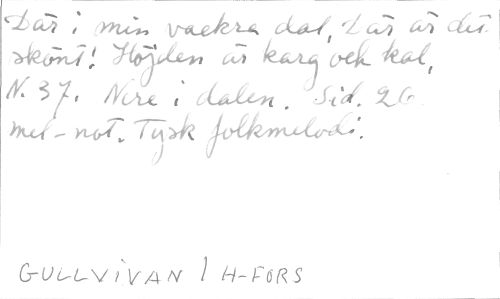 Där i min vackra dal, Där är det
skönt! Höjden är karg och kal,
N. 37. Nere i dalen. Sid. 26
mel-not. Tysk folkmelodi.
GULLVIVAN / H-FORS